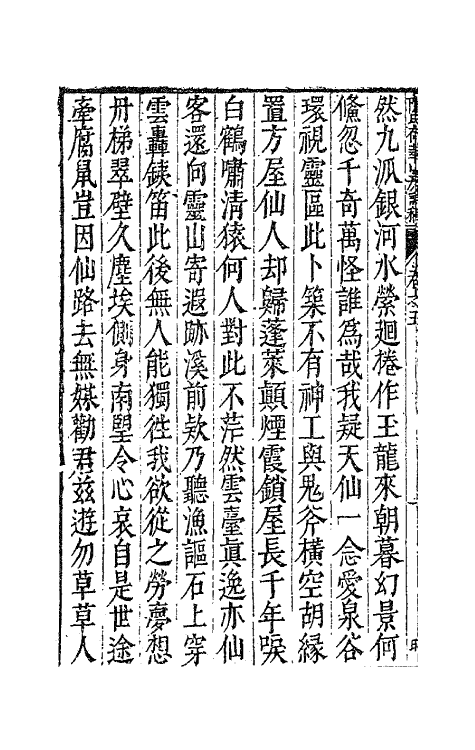 然九派銀河水縈迴捲作玉龍來朝暮幻景何
儵忽千奇萬怪誰為哉我疑天仙一念愛泉谷
環視靈區此卜築不有神工與鬼斧橫空胡緣
置方屋仙人却歸蓬萊顛煙霞鎖屋長千年唳
白鶴嘯清猿何人對此不茫然雲臺真逸亦仙
客還向靈山寄遐跡溪前欵乃聽漁謳石上穿
雲轟鐵笛此後無人能獨徃我欲從之勞夢想
丹梯翠壁久塵埃側身南望令心哀自是世途
牽腐鼠豈因仙路去無媒勸君茲遊勿草草人